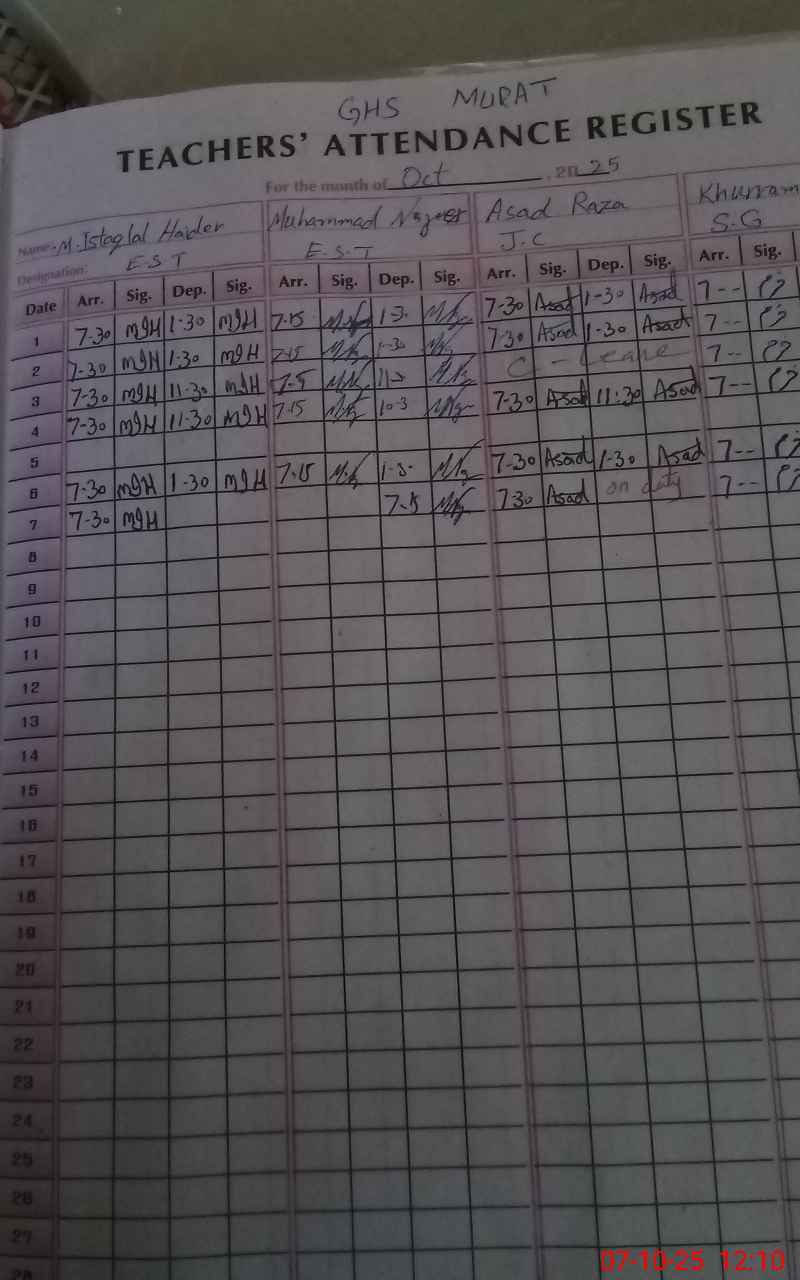 GHS MURAT
TEACHERS' ATTENDANCE REGISTER
For the month of Oct , 20 25
Name:- M. Istaqlal Haider Muhammad Nazeer Asad Raza Khurram
Designation: E.S.T E.S.T J.C S.G
Date Arr. Sig. Dep. Sig. Arr. Sig. Dep. Sig. Arr. Sig. Dep. Sig. Arr. Sig.
1 7-30 MIH 1-30 MIH 7-15 1-3- 7-30 Asad 1-30 Asad 7--
2 7-30 MIH 1-30 MIH 7-15 1-30 7-30 Asad 1-30 Asad 7--
3 7-30 MIH 11-30 MIH 7-5 C-Leave 7--
4 7-30 MIH 11-30 MIH 7-15 10-3 7-30 Asad 11:30 Asad 7--
5
6 7-30 MIH 1-30 MIH 7-15 1-3- 7-30 Asad 1-30 Asad 7--
7 7-30 MIH 7-15 7-30 Asad on duty 7--
8
9
10
11
12
13
14
15
16
17
18
19
20
21
22
23
24
25
26
27
28
07-10-25 12:10